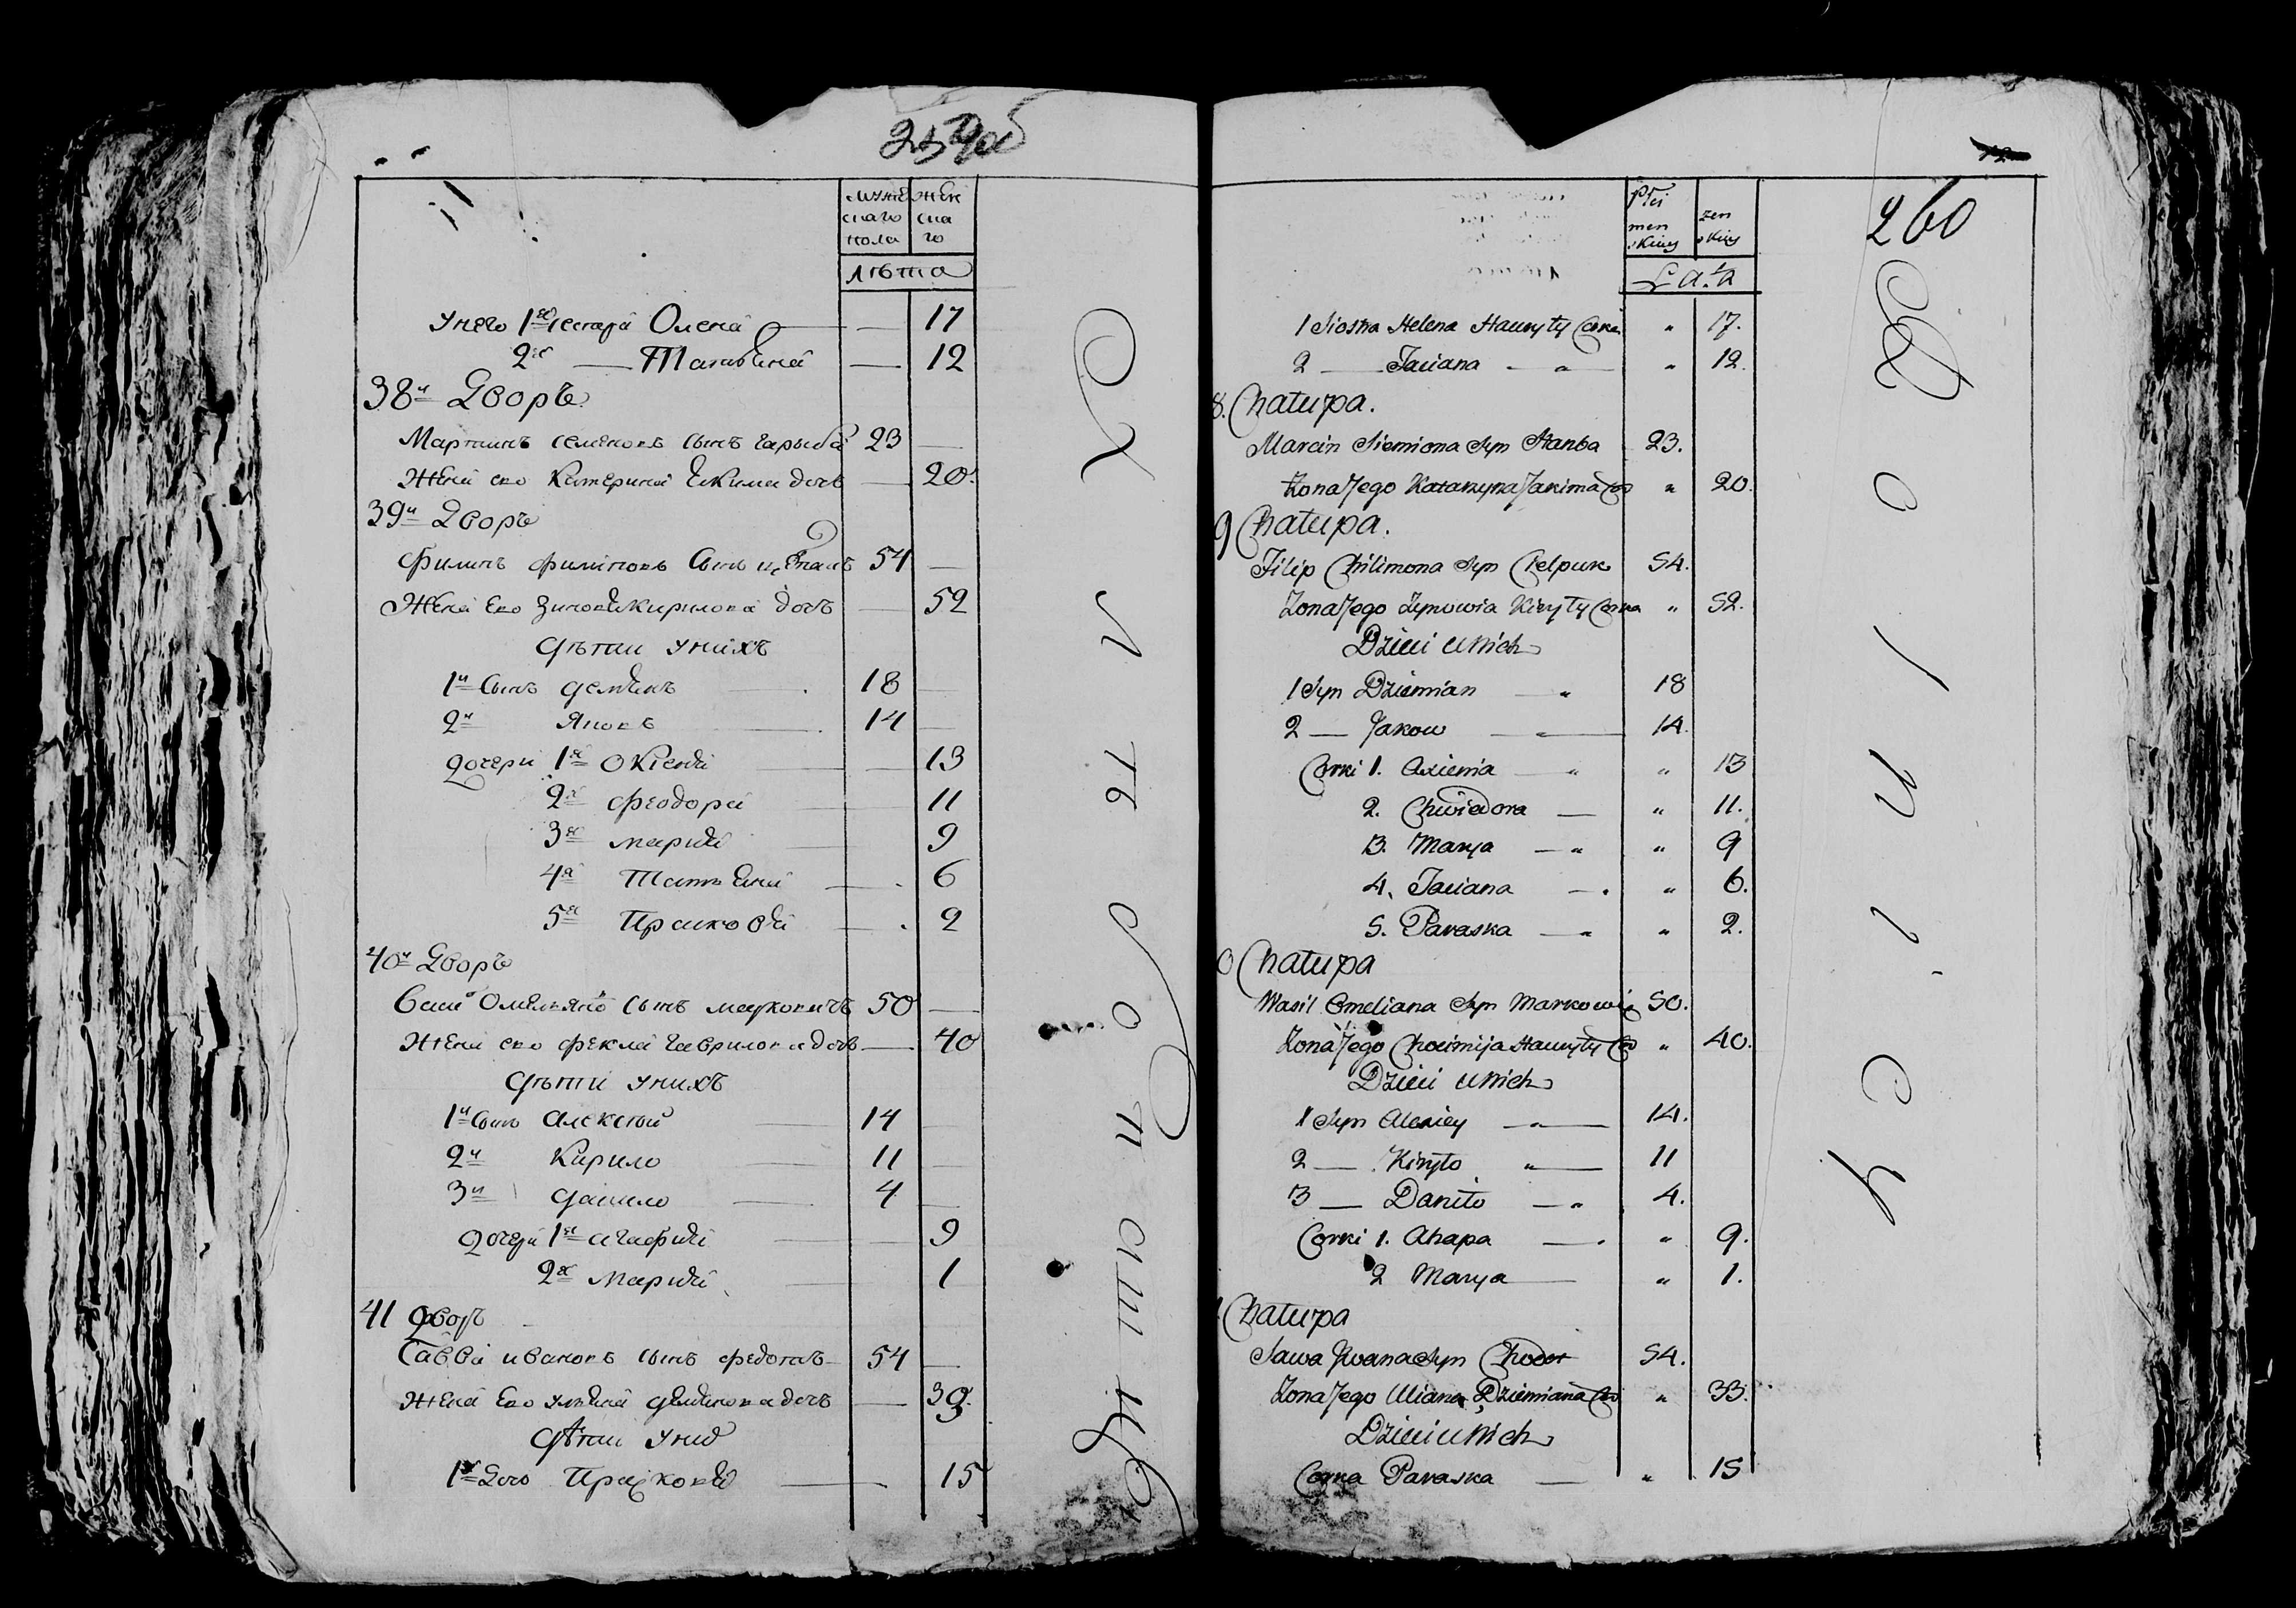 259об
мужескаго пола
женскаго
лѣта
у него 1я сестра Олена — 17
2я — Татьяна — 12
38й Дворъ
Мартинъ семеновъ сынъ 23 —
Жена ево Катерина Екима дочь — 20.
39й Дворъ
Филипъ филимоновъ сынъ 54 —
Жена Ево Зиновия Кирилова дочь — 52
Дѣти у нихъ
1й Сынъ Демьянъ — 18
2й Яковъ — 14 —
Дочери 1я Оксения — 13
2я Феодора — 11
3я мария — 9
4я Татьяна — 6
5я Прасковия — 2
40й Дворъ
Васи Омельяно сынъ марковичъ 50 —
Жена ево фекла Гаврилова дочь — 40
Дѣти у нихъ
1й Сынъ Алексѣй — 14 —
2й Кирило — 11 —
3й Данило — 4 —
Дочери 1я агафия — 9
2я Мария — 1
41 Дворъ
Савва ивановъ сынъ 54 —
Жена Ево ульяна демьянова дочь —
Дѣти у них
1я Дочь Прасковья — 15
Х
л
ѣ
о
п
а
т
260
Płci menskiey
zenskiey
Lata
1 Siostra Helena Hauryły Corka " 17.
2 — Taciana — " — " 12.
8. Chałupa.
Marcin Siemiona Syn 23.
Żona Jego Katarzyna Jakima Co " 20.
9 Chałupa.
Filip Chilimona Syn 54.
Zona Jego Zynowia Kiryły Corka " 52.
Dzieci u Nich
1 Syn Dziemian — " 18
2 — Jakow — " — 14.
Corki 1. Axienia — " " 13
2. Chwiedora — " 11.
3. Marya — " " 9
4. Taciana — . " 6.
5. Paraska — " " 2.
0 Chałupa
Wasil Omeliana Syn Markowicz 50.
Żona Jego Hauryły Co " 40.
Dzieci u Nich
1 Syn Alexiey — " — 14.
2 — Kiryło " — 11
3 — Daniło — " 4.
Corki 1. Ahapa — . " 9.
2 Marya — " 1.
Chałupa
Sawa Jwana Syn 54.
Zona Jego Uliana Dziemiana Co " 33.
Dzieci u Nich
Corka Paraska — " 15
R
o
l
n
i
c
y